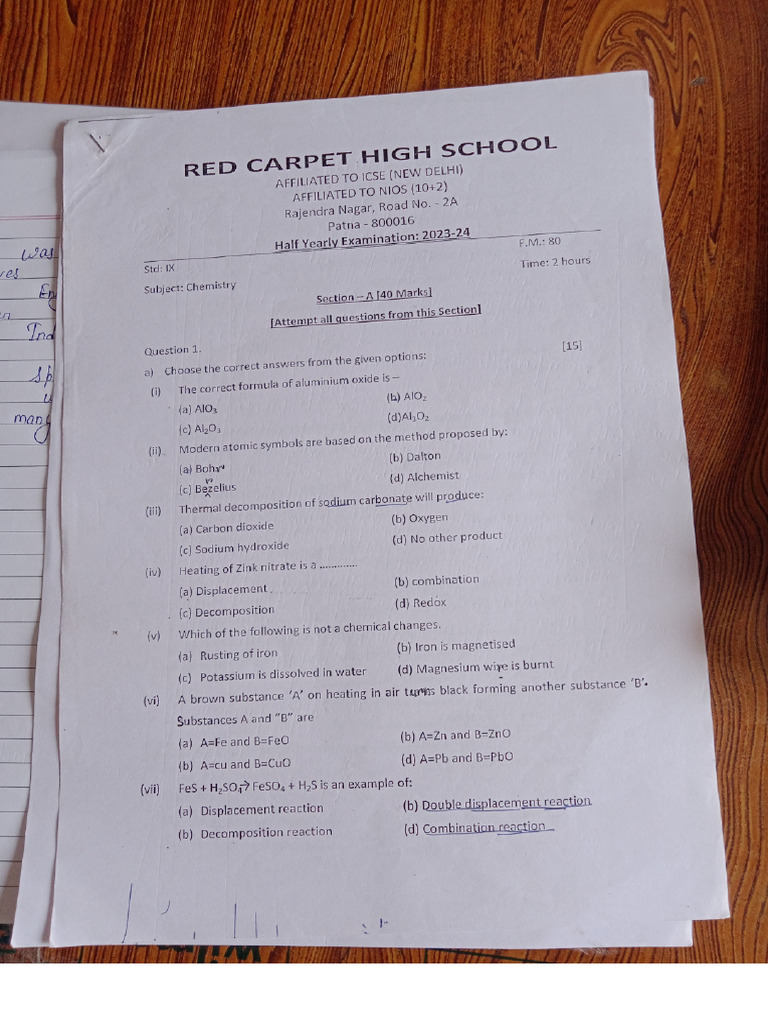 RED CARPET HIGH SCHOOL
AFFILIATED TO ICSE (NEW DELHI)
AFFILIATED TO NIOS (10+2)
Rajendra Nagar, Road No. - 2A
Patna - 800016
Half Yearly Examination: 2023-24
Std: IX F.M.: 80
Subject: Chemistry Time: 2 hours
Section – A [40 Marks]
[Attempt all questions from this Section]
Question 1. [15]
a) Choose the correct answers from the given options:
(i) The correct formula of aluminium oxide is –
(a) AlO₃ (b) AlO₂
(c) Al₂O₃ (d)Al₃O₂
(ii) Modern atomic symbols are based on the method proposed by:
(a) Bohr (b) Dalton
(c) Berzelius (d) Alchemist
(iii) Thermal decomposition of sodium carbonate will produce:
(a) Carbon dioxide (b) Oxygen
(c) Sodium hydroxide (d) No other product
(iv) Heating of Zink nitrate is a ............
(a) Displacement (b) combination
(c) Decomposition (d) Redox
(v) Which of the following is not a chemical changes.
(a) Rusting of iron (b) Iron is magnetised
(c) Potassium is dissolved in water (d) Magnesium wire is burnt
(vi) A brown substance 'A' on heating in air turns black forming another substance 'B'.
Substances A and "B" are
(a) A=Fe and B=FeO (b) A=Zn and B=ZnO
(b) A=cu and B=CuO (d) A=Pb and B=PbO
(vii) FeS + H₂SO₄→ FeSO₄ + H₂S is an example of:
(a) Displacement reaction (b) Double displacement reaction
(b) Decomposition reaction (d) Combination reaction
was
En
Ind
Sp
many